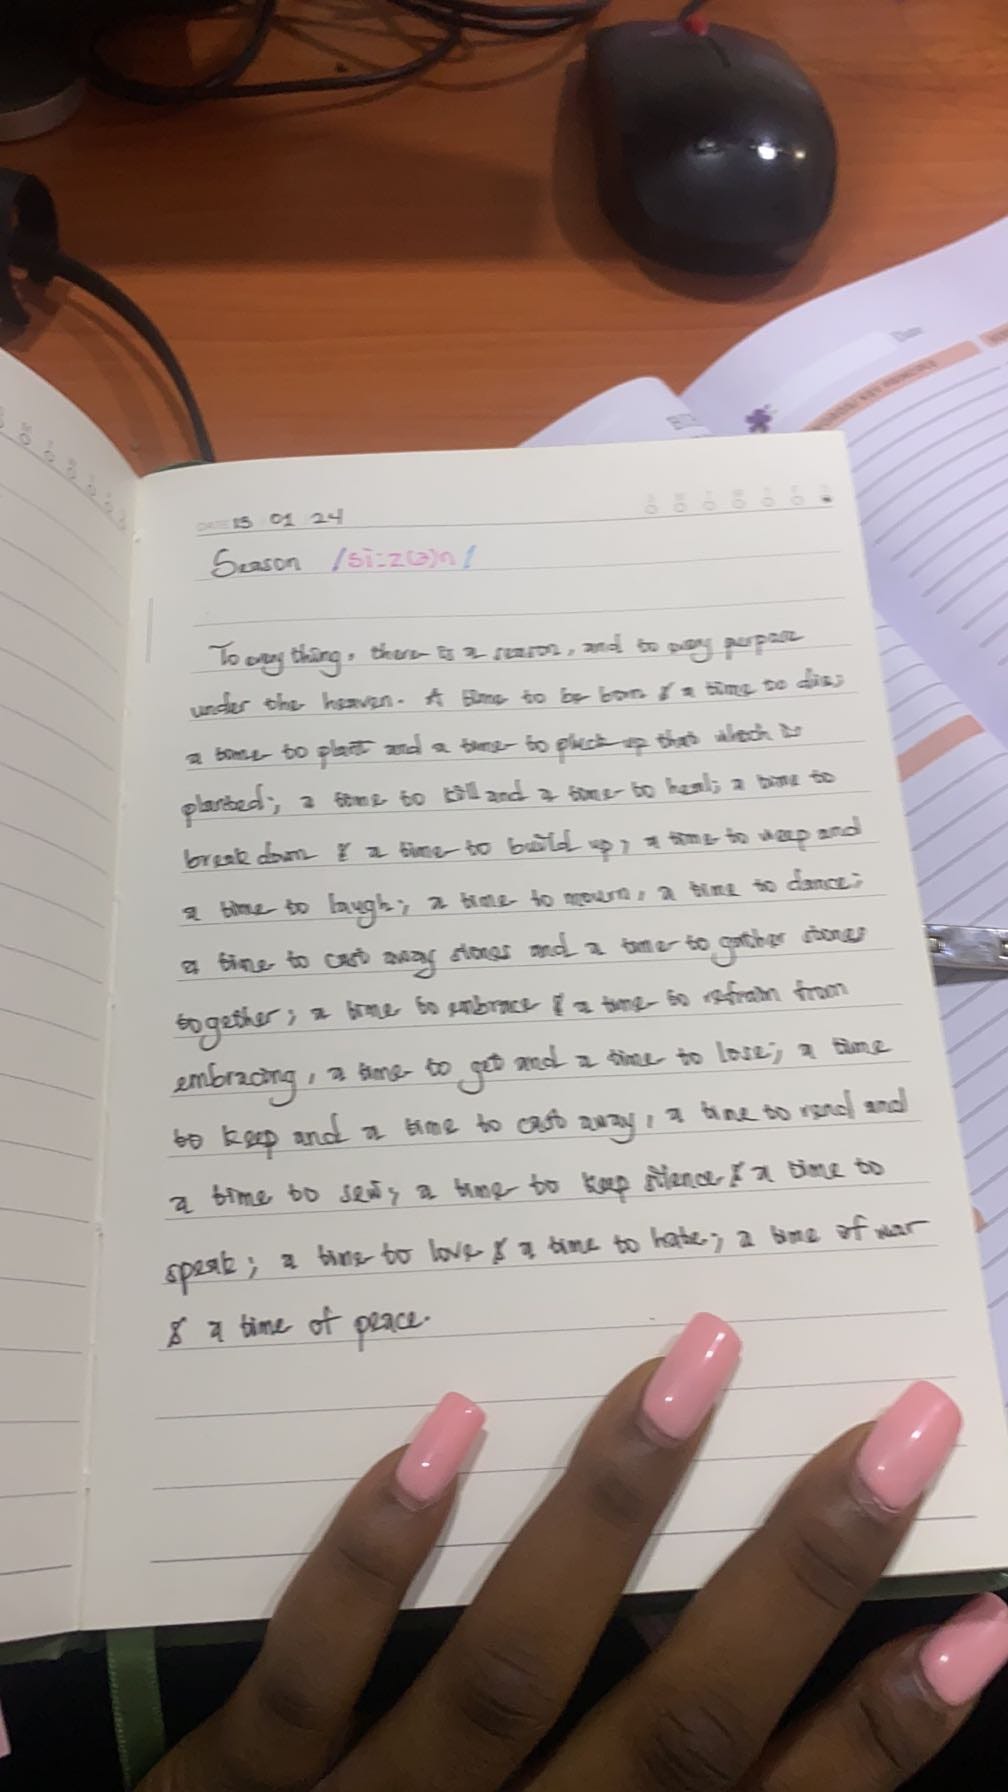 DATE 15 01 24
Season /si:z(ə)n/
To every thing, there is a season, and to every purpose
under the heaven. A time to be born & a time to die;
a time to plant and a time to pluck up that which is
planted; a time to kill and a time to heal; a time to
break down & a time to build up; a time to weep and
a time to laugh; a time to mourn, a time to dance;
a time to cast away stones and a time to gather stones
together; a time to embrace & a time to refrain from
embracing, a time to get and a time to lose; a time
to keep and a time to cast away, a time to rend and
a time to sew; a time to keep silence & a time to
speak; a time to love & a time to hate; a time of war
& a time of peace.
Date